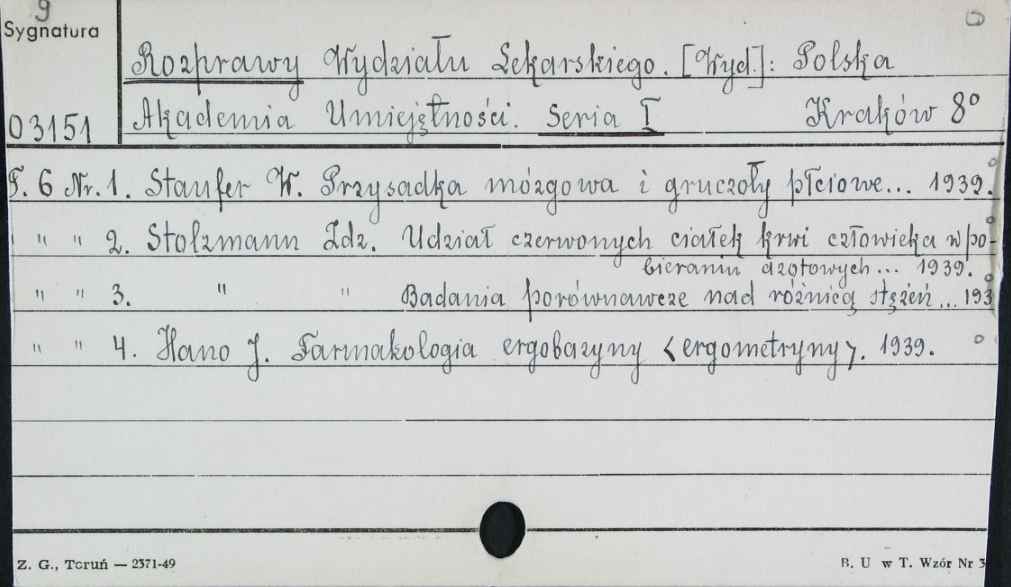 9
Sygnatura
Rozprawy Wydziału Lekarskiego. [Wyd.]: Polska
03151 Akademia Umiejętności. Seria I Kraków 8°
T. 6 Nr. 1. Staufer W. Przysadka mózgowa i gruczoły płciowe... 1939.
" " 2. Stolzmann Zdz. Udział czerwonych ciałek krwi człowieka w po-
bieraniu azotowych... 1939.
" " 3. " " Badania porównawcze nad różnicą stężeń... 193
" " 4. Hano J. Farmakologia ergobazyny <ergometryny>. 1939.
Z. G., Toruń — 2371-49
B. U w T. Wzór Nr 3